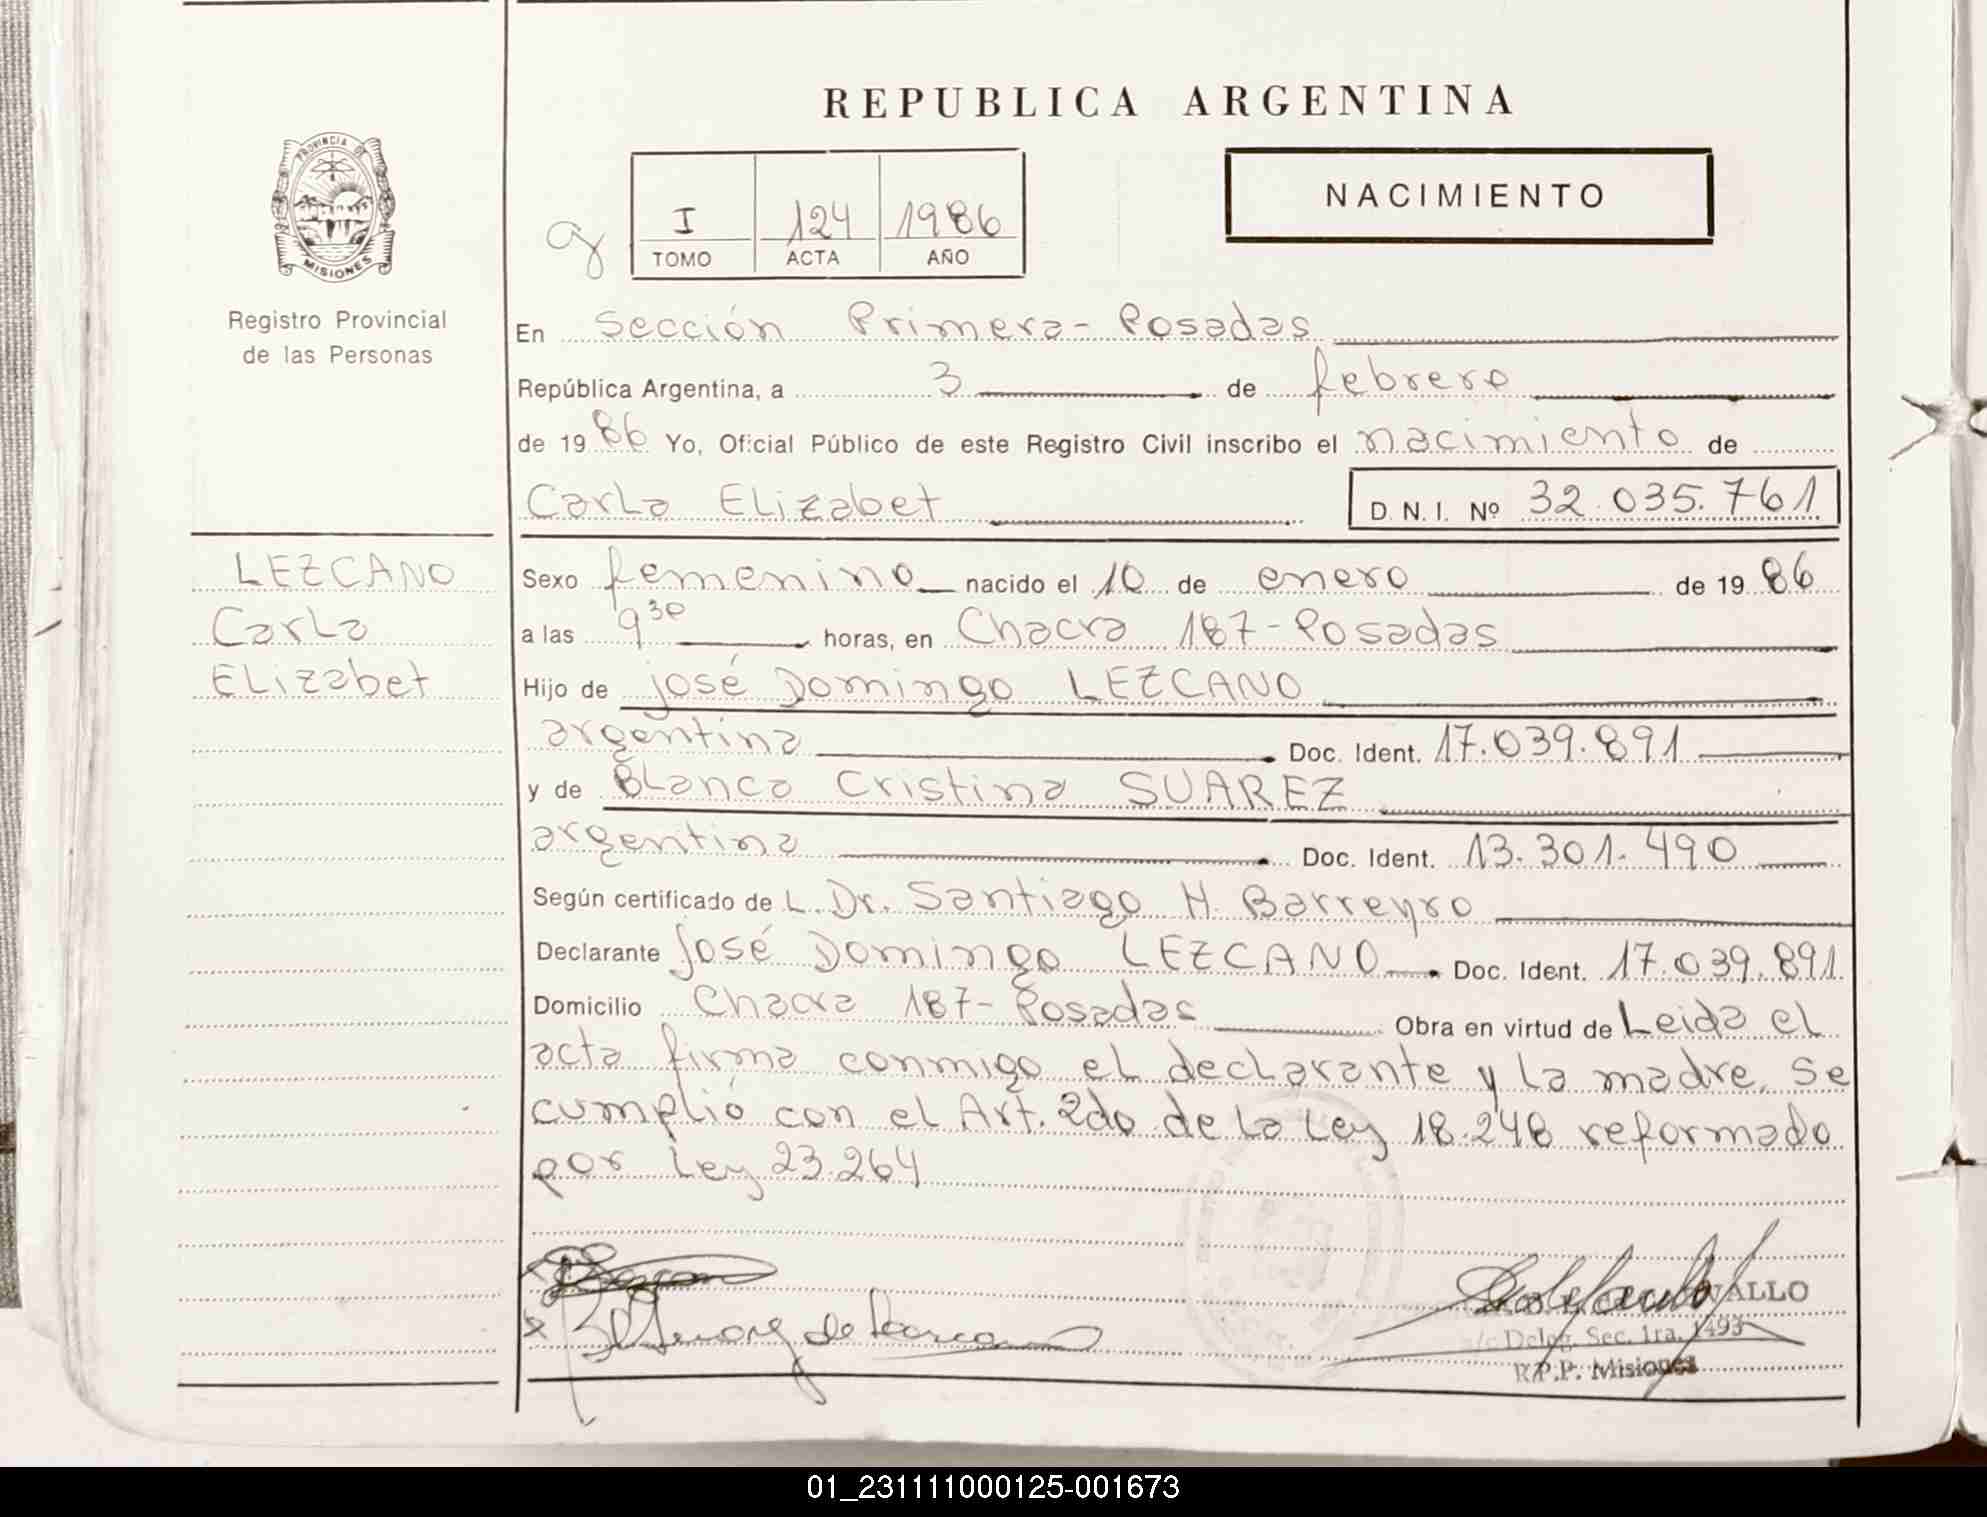 REPUBLICA ARGENTINA
PROVINCIA DE
MISIONES
Registro Provincial
de las Personas
NACIMIENTO
I 124 1986
TOMO ACTA AÑO
En Sección Primera- Posadas
República Argentina, a 3 de febrero
de 19 86 Yo, Oficial Público de este Registro Civil inscribo el nacimiento de
Carla Elizabet D.N.I. Nº 32.035.761
LEZCANO
Carla
Elizabet
Sexo femenino nacido el 10 de enero de 19 86
a las 9 30 horas, en Chacra 187-Posadas
Hijo de José Domingo LEZCANO
argentina Doc. Ident. 17.039.891
y de Blanca Cristina SUAREZ
argentina Doc. Ident. 13.301.490
Según certificado de L. Dr. Santiago H. Barreyro
Declarante José Domingo LEZCANO Doc. Ident. 17.039.891
Domicilio Chacra 187-Posadas Obra en virtud de Leida el
acta firma conmigo el declarante y la madre. Se
cumplió con el Art. 2do de la Ley 18.248 reformado
por Ley 23.264
Deleg. Sec. 1ra. 1493
R.P.P. Misiones
01_231111000125-001673